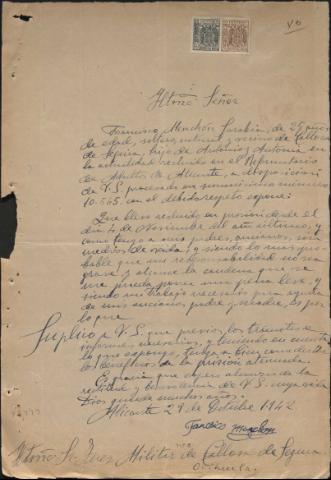 40
Iltmo Señor
Francisco Menchón Sarabia, de 25 años
de edad, soltero, natural y vecino de Callosa
de Segura, hijo de Antonio y Antonia en
la actualidad recluido en el Reformatorio
de Adultos de Alicante, a disposicion
de V.S. procesado en sumarisimo número
10.565 con el debido respeto expone:
Que lleva recluido en prision desde el
dia 4 de Noviembre del año ultimo, y
como tengo a mis padres, ancianos, sin
medios de vida y siendo lo mas pro-
bable que mi responsabilidad no sea
grave y alcance la condena que se
me pueda poner una pena leve, y
siendo mi trabajo necesario para ayuda
de mis ancianos padres, es por
lo que
Suplico a V.S. que previos los tramites e
informes necesarios, y teniendo en cuenta
lo que expongo, tenga a bien concederme
los beneficios de la prisión atenuada.
Es gracia que espera alcanzar de la
rectitud y benevolencia de V.S. cuya vida
Dios guarde muchos años.
Alicante 29 de Octubre 1942
Francisco Menchon
Iltmo Sr. Juez Militar de Callosa de Segura
Orihuela.